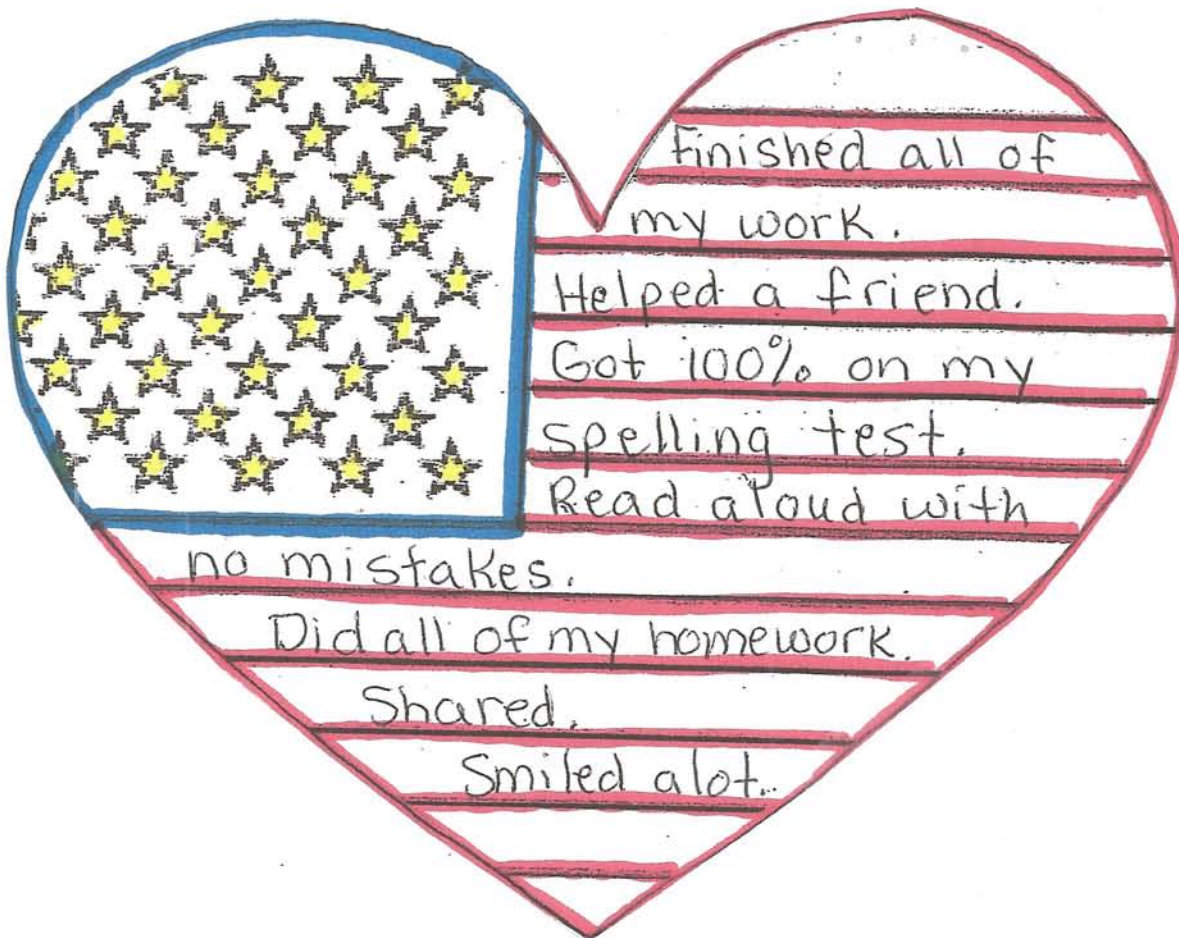 Finished all of
my work.
Helped a friend.
Got 100% on my
spelling test.
Read aloud with
no mistakes.
Did all of my homework.
Shared.
Smiled alot.